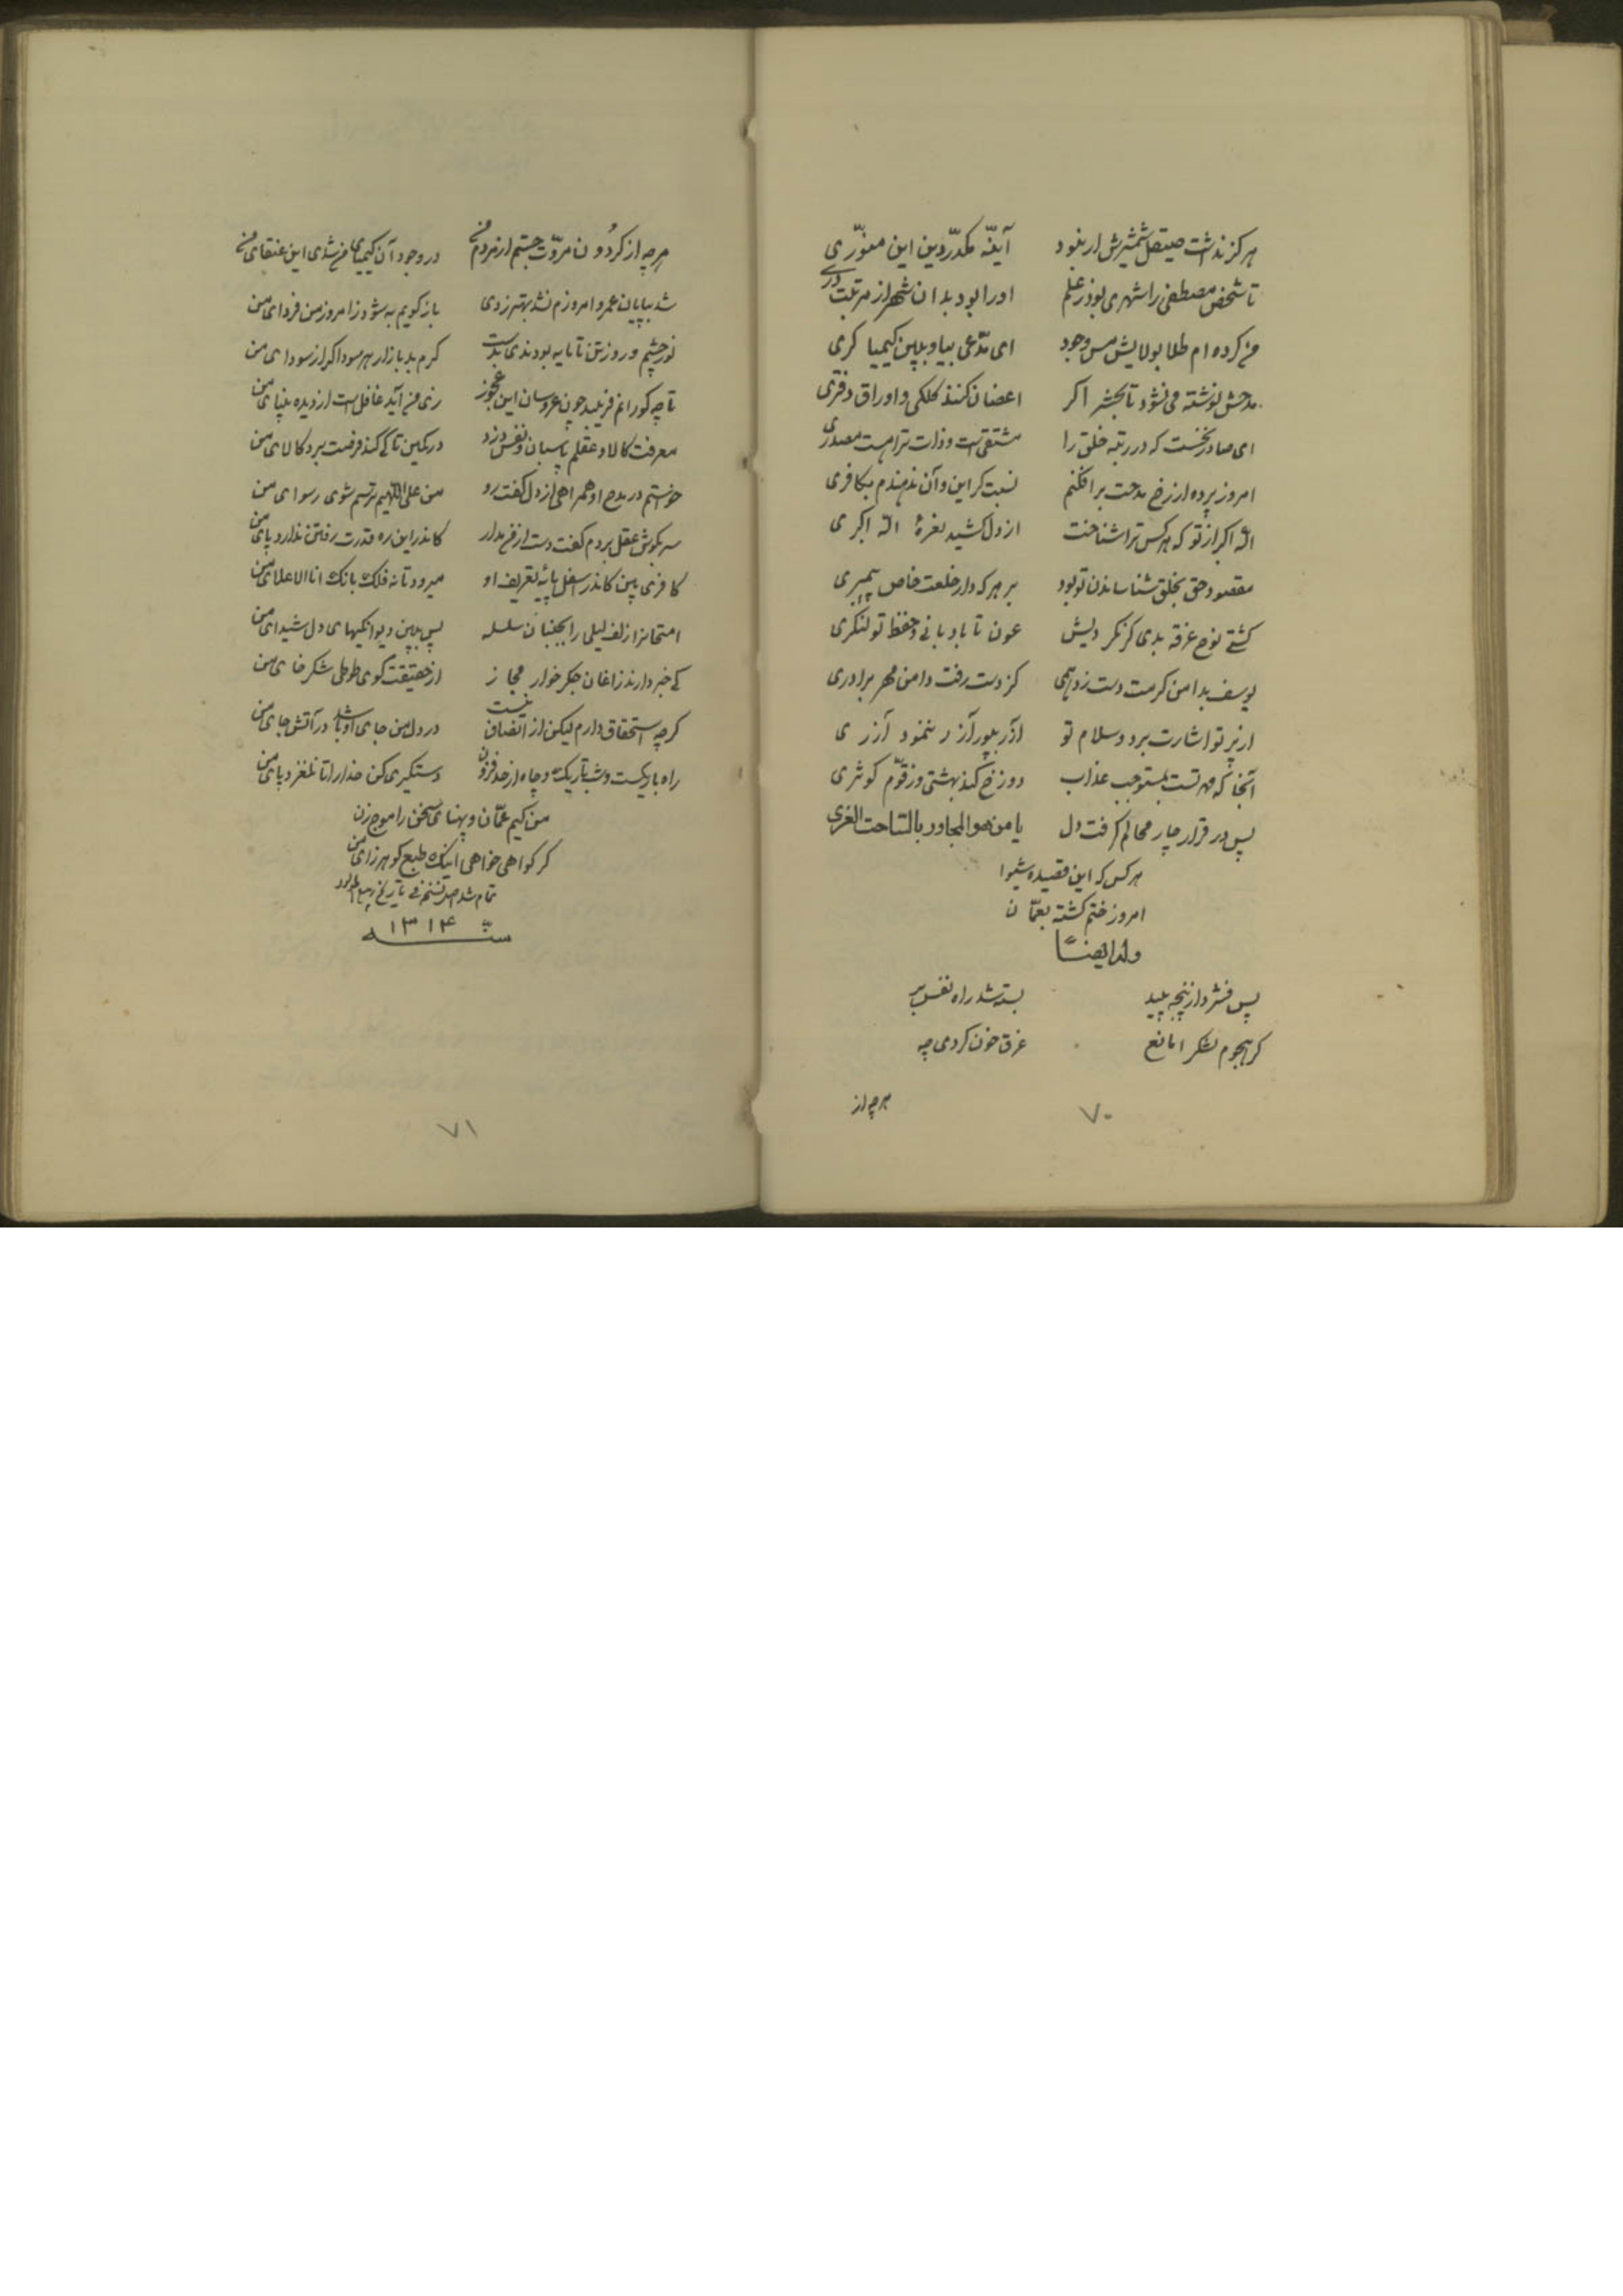 هرگز نداشت صیقل شمشیرش ار نبود آینهٔ مکدّر دین این منوّری
تا شخص مصطفی را شهری بود ز علم او را بود بدان شهر از مرتبت دری
من کرده‌ام طلا بولایش مس وجود ای مدّعی بیا و ببین کیمیا گری
مدحش نوشته می نشود تا بحشر اگر اغصان کنند کلکی و اوراق دفتری
ای صادر نخست که در رتبه خلق را مشتقی است و ذات ترا هست مصدری
امروز پرده از رخ مدحت برافکنم نسبت گر این و آن ندهندم بکافری
الله اکبر از تو که هر کس ترا شناخت از دل کشید نعرهٔ الله اکبری
مقصود حق بخلق شناساندن تو بود بر هر که داد خلعت خاص پیمبری
کشتی نوح غرقه بدی گر نکردیش عون تا بادبانی و حفظ تو لنگری
یوسف بدامن کرمت دست زد همی کز دست رفت دامن مهر برادری
ار نز تو اشارت برد و سلام تو آذر بپور آزر ننمود آزری
آنجا که مهر تست بمستوجب عذاب دوزخ کند بهشتی و زقّوم کوثری
پس در قرار چار محالم گرفت دل یا من هو المجاور بالساحت الغری
هر کس که این قصیده شیوا
امروز ختم گشته بعمّان
وله ایضاً
پس فشرد از پنجه پلید بسته شد راه نفس بر
گر هجوم لشکر اما نع غرق خون کردی چه
هرچه از
۷۰
هرچه از گردون مروّت جستم از مردم وفی در وجود آن کیمیای من شد ای این عنقای من
شد بپایان عمر و امروزم نشد بهتر ز دی باز گویم به شود ز امروز من فردای من
نور چشم و روز تن تا پایه بودند ای بدست گرم بد بازار هر سوداگر از سودای من
تا چه کورانم فریبد چون عروسان این عجوز زی من آید غافل است از دیده بینای من
معرفت کالا و عقلم پاسبان و نفس دزد در کمین تا کی کند فرصت برد کالای من
خواستم در مدح او همراهی از دل گفت رو من علی اللهیم ترسم شوی رسوای من
سر بگوش عقل بردم گفت دست از من بدار کاندر این ره قدرت رفتن ندارد پای من
کافری بین کاندر اسفل پایهٔ تعریف او میرود تا نه فلک بانگ انا الاعلای من
امتحانرا زلف لیلی را بجنبان سلسله پس ببین دیوانگیهای دل شیدای من
کی خبر دارند زاغان جگر خوار مجاز از حقیقت گوی طوطی شکر خای من
گرچه استحقاق دارم لیکن از انصاف نیست در دل من جای او باشد در آتش جای من
راه باریکست و شب تاریک و چاه از حد فزون دستگیری کن خدا را تا نلغزد پای من
من کیم عمّان و پهنای سخن را موج زن
گر گواهی خواهی اینک طبع گوهر زای من
تمام شد فی تاریخ ربیع المولود
سنه ۱۳۱۴
۷۱